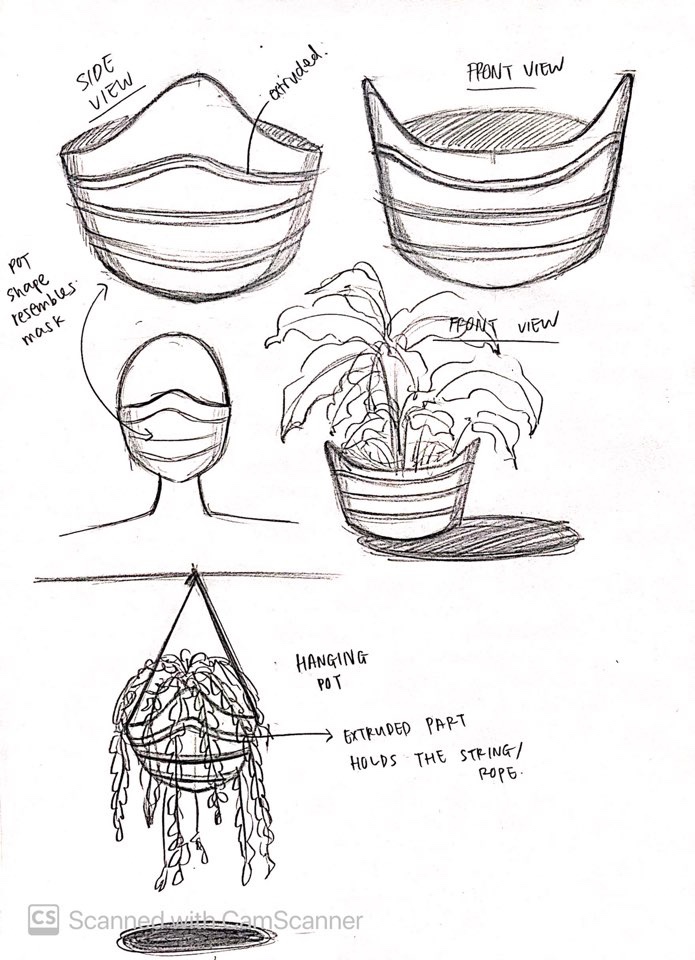 SIDE
VIEW
extruded.
FRONT VIEW
POT
shape
resembles
mask
FRONT VIEW
HANGING
POT
EXTRUDED PART
HOLDS THE STRING/
ROPE.
CS Scanned with CamScanner